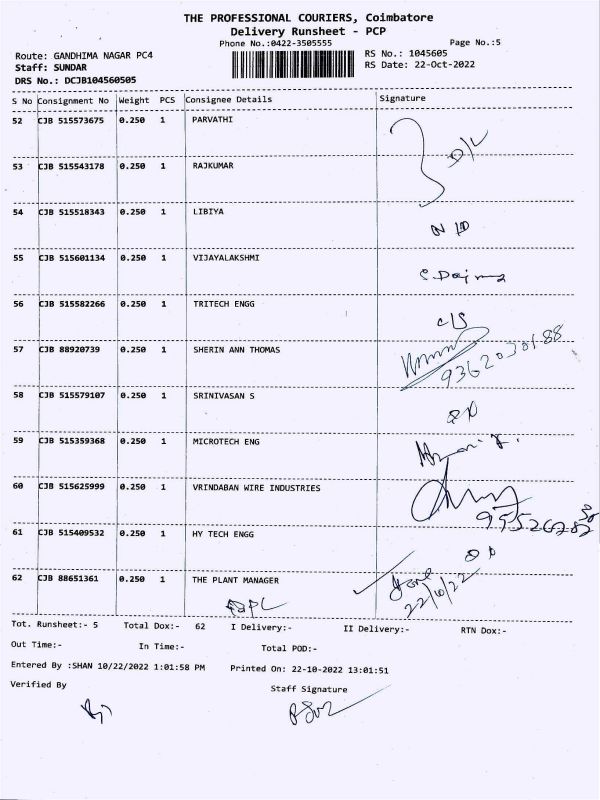 THE PROFESSIONAL COURIERS, Coimbatore
Delivery Runsheet - PCP
Phone No.:0422-3505555
Page No.:5
Route: GANDHIMA NAGAR PC4
RS No.: 1045605
Staff: SUNDAR
RS Date: 22-Oct-2022
DRS No.: DCJB104560505
S No Consignment No Weight PCS Consignee Details Signature
52 CJB 515573675 0.250 1 PARVATHI
D/L
53 CJB 515543178 0.250 1 RAJKUMAR
54 CJB 515518343 0.250 1 LIBIYA
55 CJB 515601134 0.250 1 VIJAYALAKSHMI
56 CJB 515582266 0.250 1 TRITECH ENGG
C/S
57 CJB 88920739 0.250 1 SHERIN ANN THOMAS
9362030188
58 CJB 515579107 0.250 1 SRINIVASAN S
59 CJB 515359368 0.250 1 MICROTECH ENG
60 CJB 515625999 0.250 1 VRINDABAN WIRE INDUSTRIES
61 CJB 515409532 0.250 1 HY TECH ENGG
62 CJB 88651361 0.250 1 THE PLANT MANAGER
22/10/22
Tot. Runsheet:- 5 Total Dox:- 62 I Delivery:- II Delivery:- RTN Dox:-
Out Time:- In Time:- Total POD:-
Entered By :SHAN 10/22/2022 1:01:58 PM Printed On: 22-10-2022 13:01:51
Verified By Staff Signature